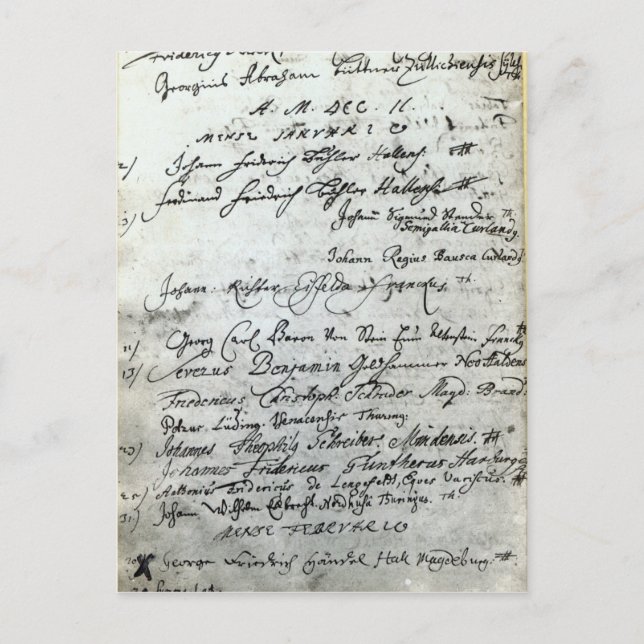 Georgius Abraham Büttner Züllichiensis
A. M. DCC. II.
MENSE IANVARIO
Johann Fridrich Hallens:
Ferdinand Friedrich Hallens:
Johann Sigmund Stender Th.
Semigallia Curland9.
Johann Regius Bausca Curland9
Johann: Richter Eisfelda Franckus Th.
11) Georg Carl Baron Von Stein Francky
13) Severus Benjamin Goldhammer Neo Haldens
Fridericus Christoph: Schrader Magd: Brand:
Petrus Lüding: Venacensis Thuring:
Johannes Theophilg Schreiber Mindensis.
Johannes Fridericus Guntherus Harburg
25) Antonius Fridericus de Lengefeldt, Eques Variscus.
31) Johann Wilhelm Nordhusa Thuringus. Th.
MENSE FEBRVARIO
George Friedrich Händel Hall Magdeburg.